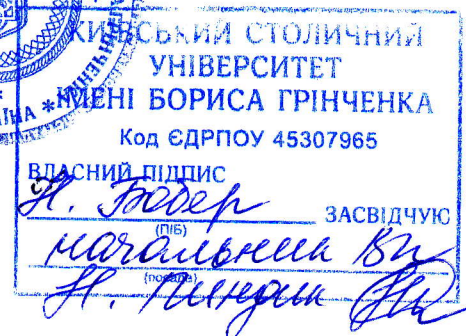 КИЇВСЬКИЙ СТОЛИЧНИЙ
УНІВЕРСИТЕТ
ІМЕНІ БОРИСА ГРІНЧЕНКА
Код ЄДРПОУ 45307965
ВЛАСНИЙ ПІДПИС
Н. Бобер ЗАСВІДЧУЮ
(ПІБ)
начальник
(посада)
Н.